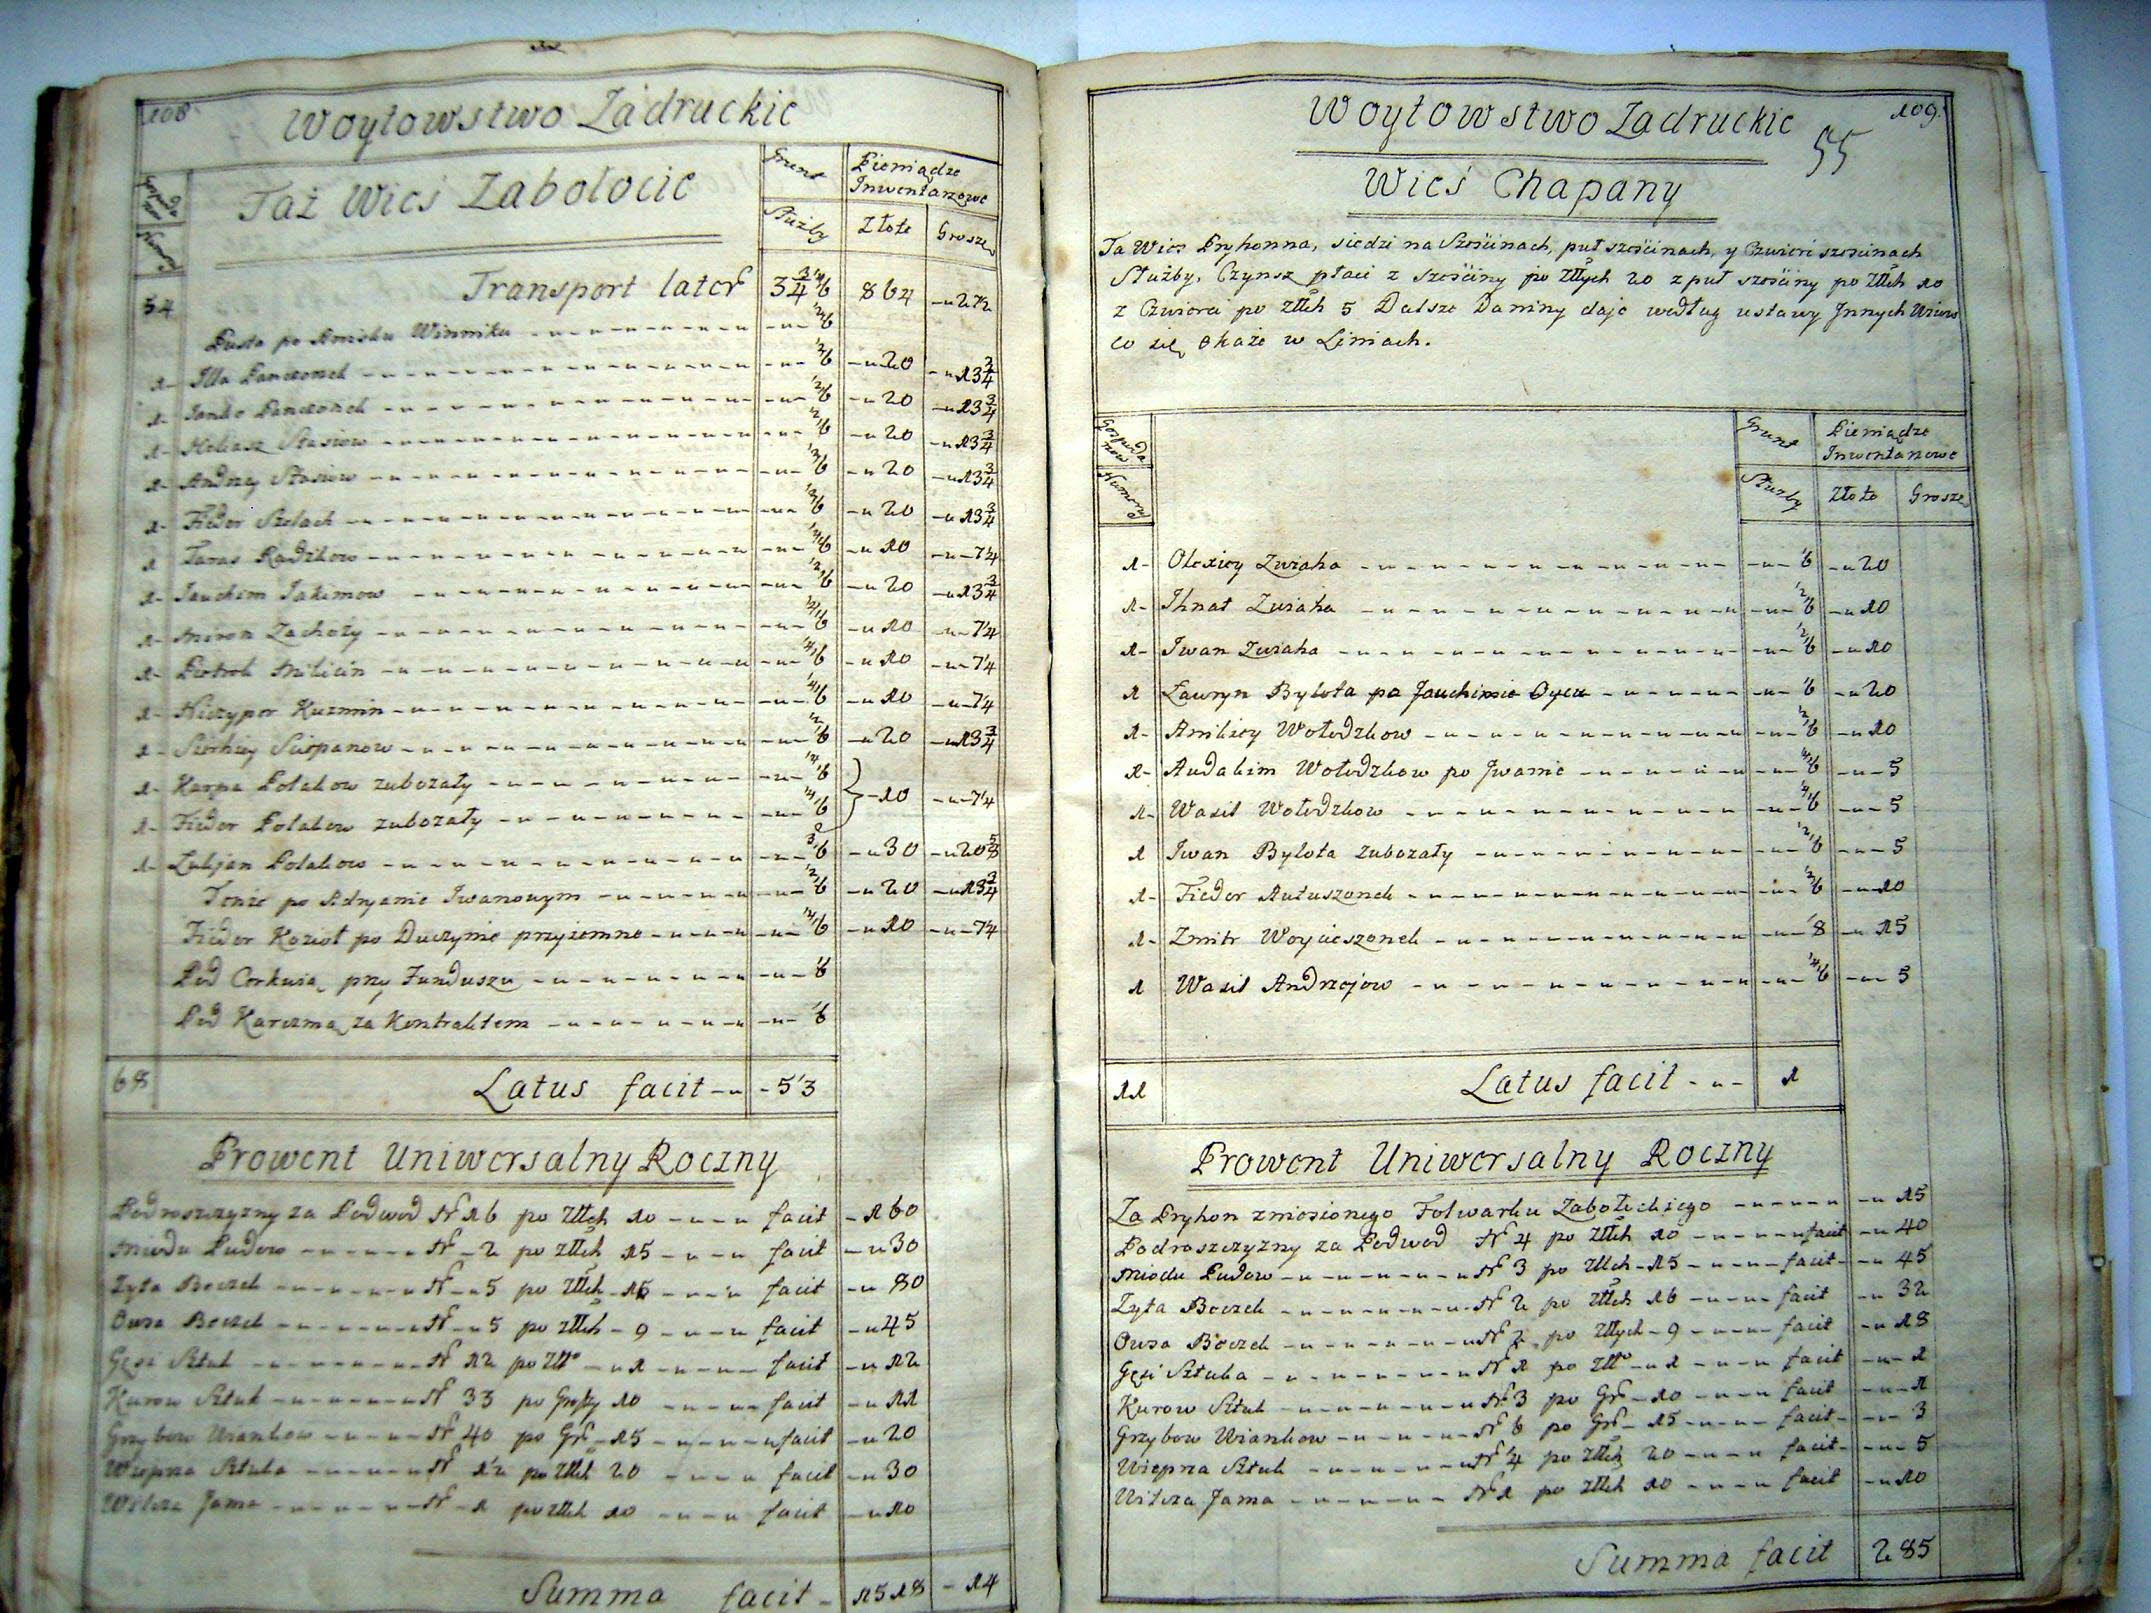 108
Woytowstwo Zadruckie
Taż Wieś Zabołocie
Grunt
Pieniądze
Inwentarzowe
Służby
Złote
Grosze
54 Transport later 864
Pusta po Winnika
1 Illa 20 13 3/4
1 20 13 3/4
1 Stasiow 20 13 3/4
1 Andrzey Stasiow 20 13 3/4
1 Fiedor Szelach 20 13 3/4
1 Taras Radzkow 10 7 1/4
1 Jauchim Jakimow 20 13 3/4
1 Miron Zachoży 10 7 1/4
1 Piotrok Milicin 10 7 1/4
1 Niczypor Kuzmin 10 7 1/4
1 Sciepanow 20 13 3/4
1 Karpa Polakow zubozały
1 Fiedor Polakow zubozały 10 7 1/4
1 Łukjan Polakow 3/6 30 20 5/8
Tenże po Adryanie Iwanowym 20 13 3/4
Fiedor Kozioł po Duczynie przyiemne 10 7 1/4
Pod Cerkwią przy Funduszu 1/6
Pod Karczmą za Kontraktem 1/6
68 Latus facit 5 1/3
Prowent Uniwersalny Roczny
Podroszczyzny za Podwod Nr 16 po Złłch 10 facit 160
Miodu Pudow Nr 2 po Złłch 15 facit 30
Żyta Beczek Nr 5 po Złłch 16 facit 80
Owsa Beczek Nr 5 po Złłch 9 facit 45
Gęsi Sztuk Nr 12 po Złło 1 facit 12
Kurow Sztuk Nr 33 po Groszy 10 facit 11
Grzybow Wiankow Nr 40 po Gr 15 facit 20
Wieprza Sztuka Nr 1 1/2 po Złłch 20 facit 30
Wilcza Jama Nr 1 po Złłch 10 facit 10
Summa facit 1518 14
109
55
Woytowstwo Zadruckie
Wieś Chapany
Ta Wieś Pryhonna, siedzi na Szościnach, puł szościnach, y Czwierci szościnach
Służby, Czynsz płaci z szościny po Złłych 20 z puł szościny po Złłch 10
z Czwierci po Złłch 5 Dalsze Daniny daje według ustawy Jnnych Wsiow
co się okaże w Liniach.
Gospoda
rzow
Numera
Grunt
Pieniądze
Inwentarzowe
Służby
Złote
Grosze
1 Olexiey Zwiaha 1/6 20
1 Ihnat Zwiaha 1/2/6 10
1 Iwan Zwiaha 1/2/6 10
1 Ławryn Byłota po Jauchimie Oycu 1/6 20
1 Anikiey Wołodzkow 1/2/6 10
1 Audakim Wołodzkow po Jwanie 1/4/6 5
1 Wasil Wołodzkow 1/4/6 5
1 Iwan Byłota zubozały 1/2/6 5
1 Fiedor Autuszonek 1/2/6 10
1 Zmitr Woycieszonek 1/8 15
1 Wasil Andrzejow 1/4/6 5
11 Latus facit 1
Prowent Uniwersalny Roczny
Za Pryhon zniosionego Folwarku Zabołockiego 15
Podroszczyzny za Podwod Nr 4 po Złłch 10 facit 40
Miodu Pudow Nr 3 po Złłch 15 facit 45
Żyta Beczek Nr 2 po Złłch 16 facit 32
Owsa Beczek Nr 2 po Złłych 9 facit 18
Gęsi Sztuka Nr 1 po Złło 1 facit 1
Kurow Sztuk Nr 3 po Gr 10 facit 1
Grzybow Wiankow Nr 6 po Gr 15 facit 3
Wieprza Sztuk Nr 1/4 po Złłch 20 facit 5
Wilcza Jama Nr 1 po Złłch 10 facit 10
Summa facit 285